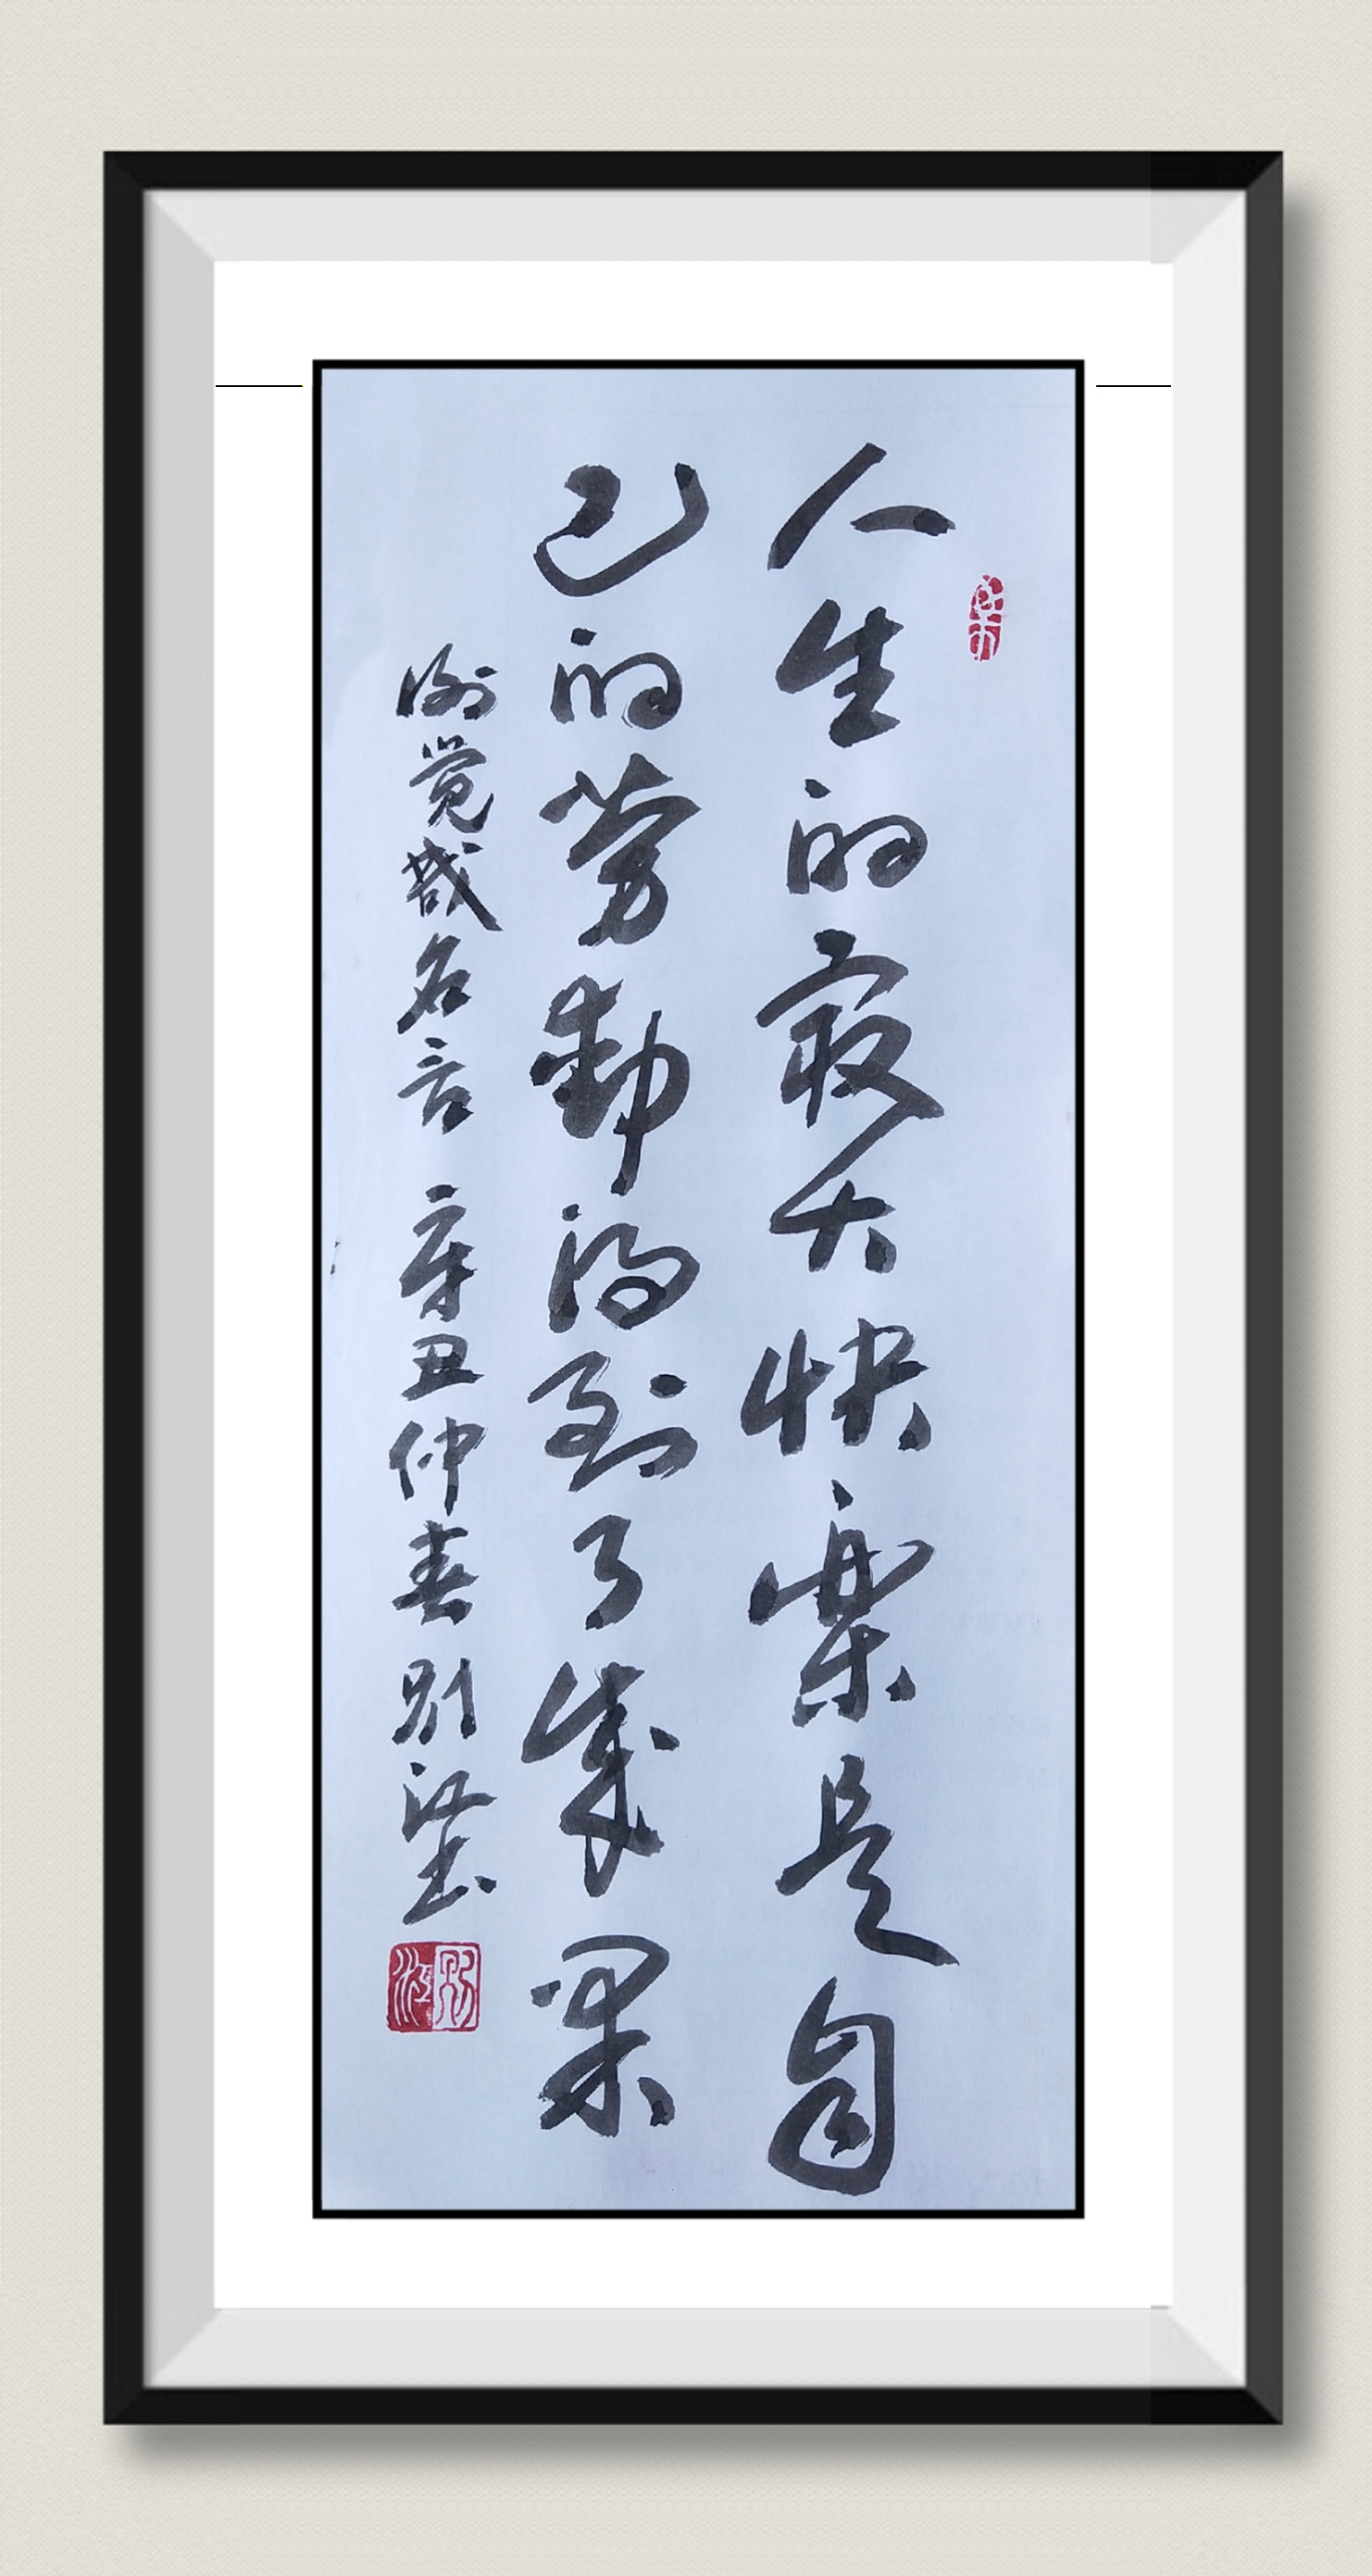 人生的最大快樂是自
己的劳動得到了成果
谢觉哉名言 辛丑仲春 别江